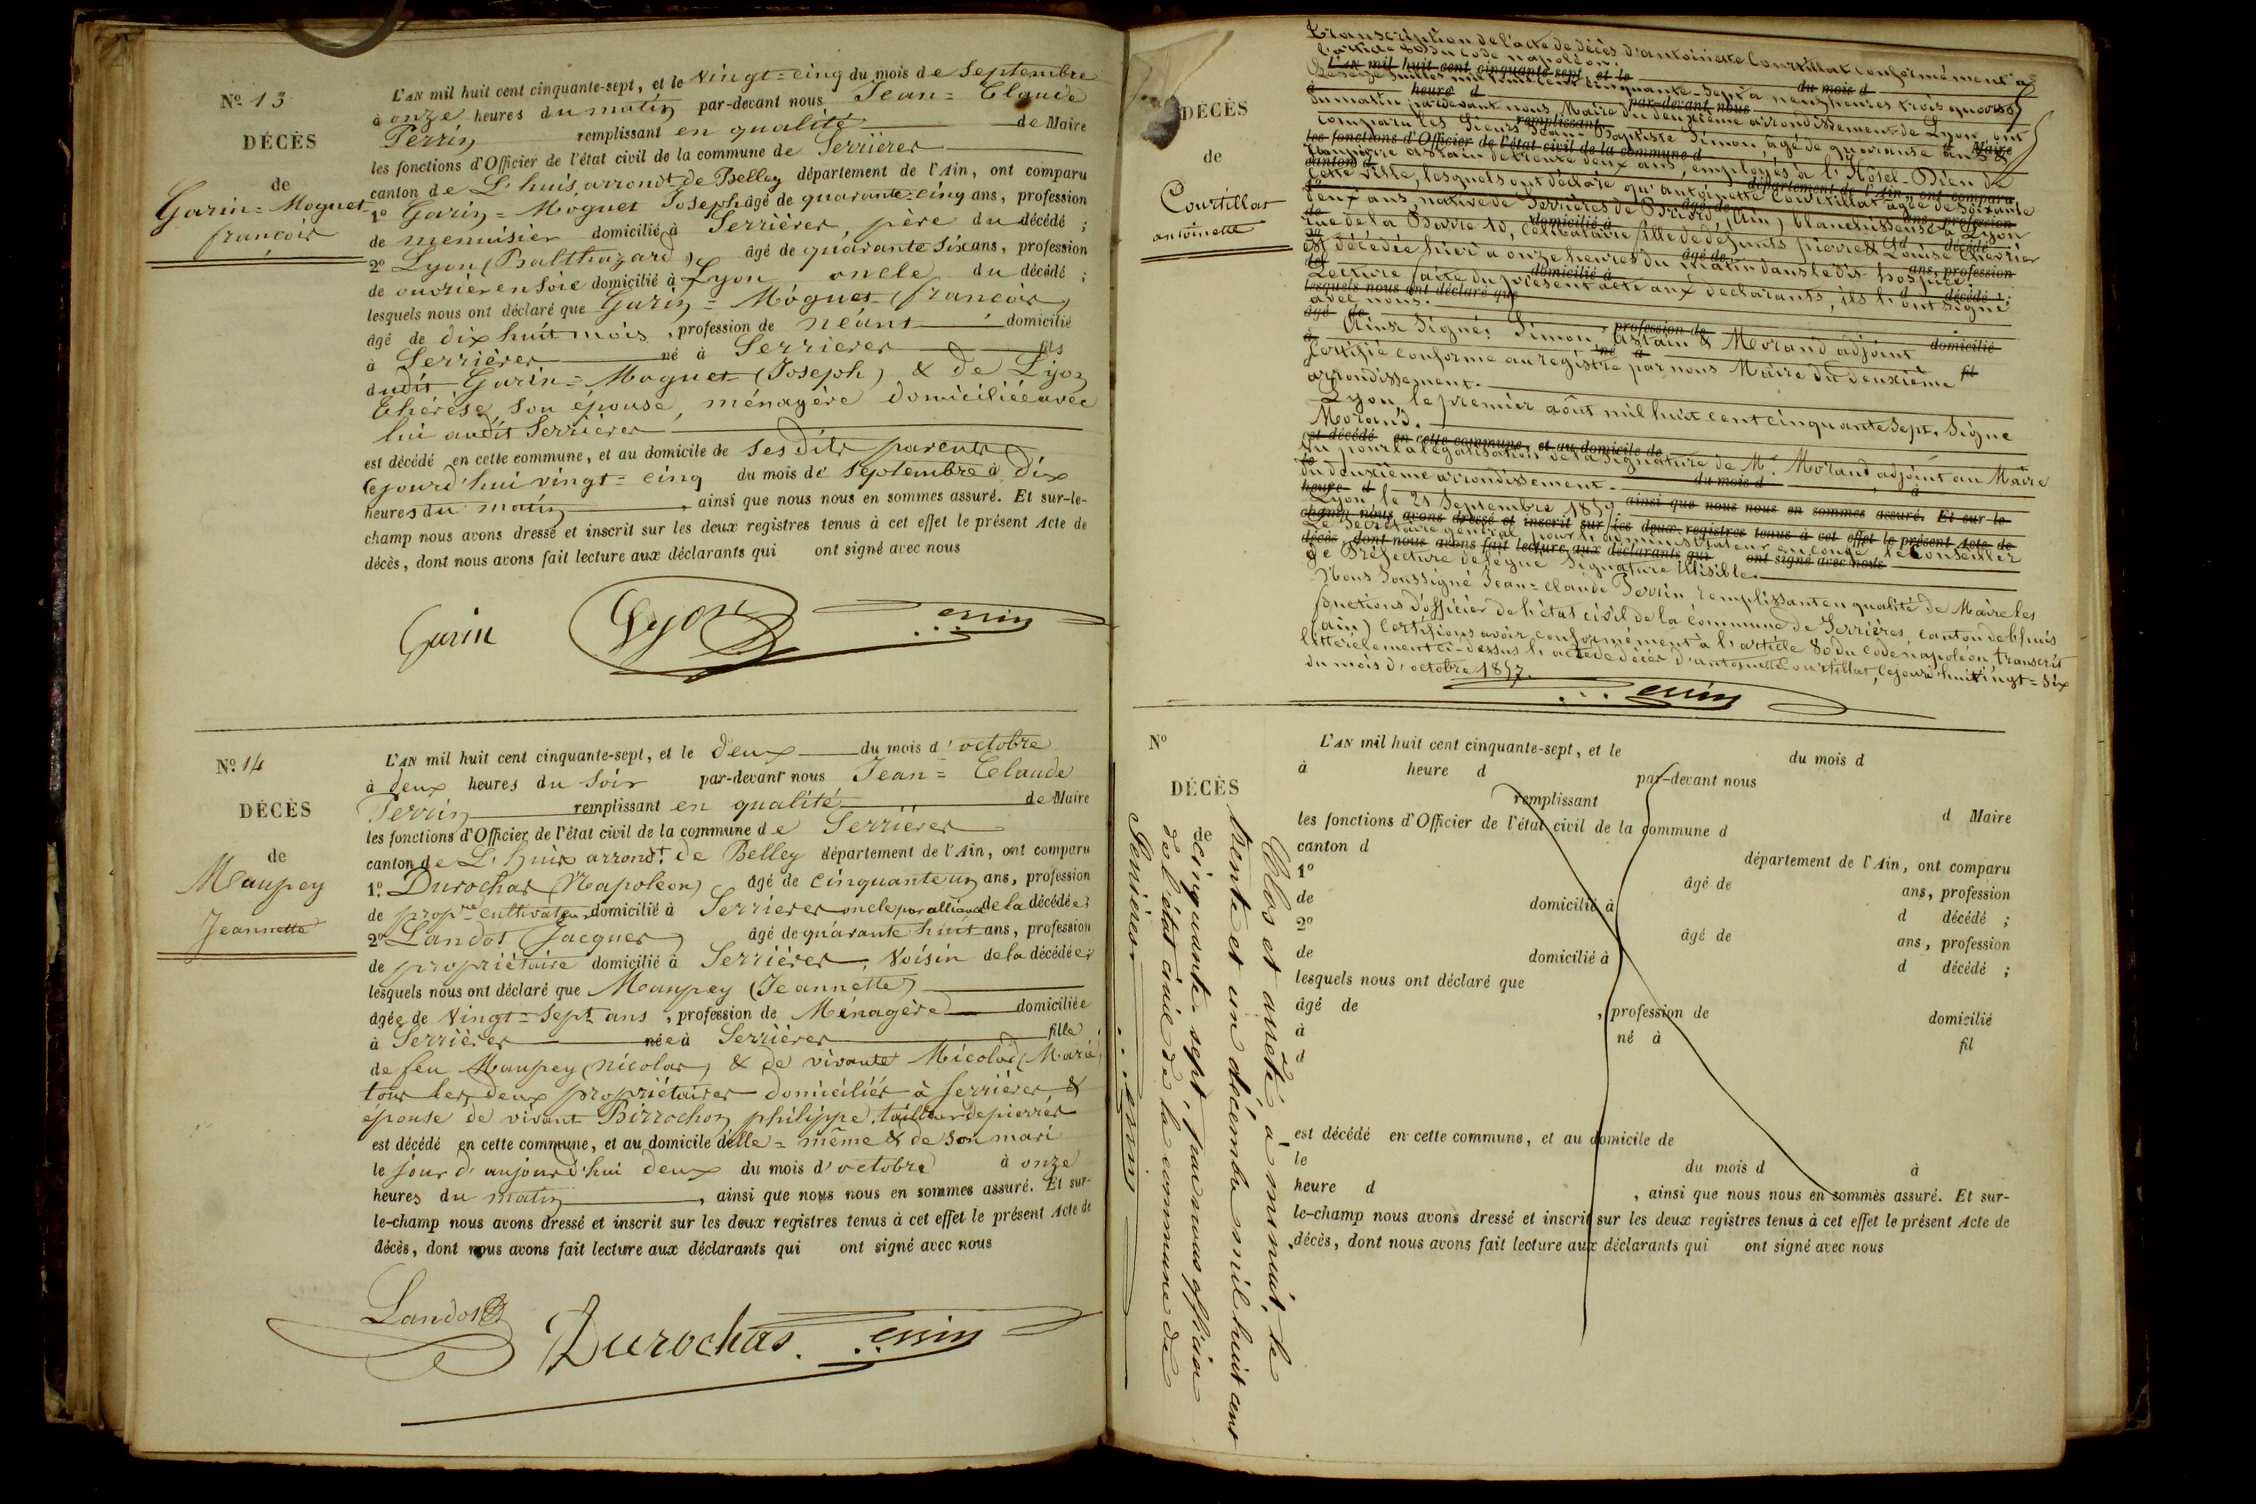 Nº 13
DÉCÈS
de
Garin=Moguet
francois
L'AN mil huit cent cinquante-sept, et le vingt=cinq du mois de Septembre
à onze heures du matin par-devant nous Jean=Claude
Perrin remplissant en qualité de Maire
les fonctions d'Officier de l'état civil de la commune de Serrières
canton de L'huis, arrondt de Belley département de l'Ain, ont comparu
1º Garin=Moguet Joseph âgé de quarante-cinq ans, profession
de menuisier domicilié à Serrières, père du décédé ;
2º Lyon (Balthazard) âgé de quarante Six ans, profession
de ouvrier en Soie domicilié à Lyon oncle du décédé ;
lesquels nous ont déclaré que Garin=Moguet (francois)
âgé de dix huit mois, profession de néant domicilié
à Serrières né à Serrieres fils
dudit Garin=Moguet (Joseph) & de Lyon
Thérèse, Son épouse, ménagère domiciliée avec
lui audit Serrières
est décédé en cette commune, et au domicile de Ses dits parents
cejourd'hui vingt=cinq du mois de Septembre à dix
heures du matin, ainsi que nous nous en sommes assuré. Et sur-le-
champ nous avons dressé et inscrit sur les deux registres tenus à cet effet le présent Acte de
décès, dont nous avons fait lecture aux déclarants qui ont signé avec nous
Garin Lyon Perrin
Nº 14
DÉCÈS
de
Maupey
Jeannette
L'AN mil huit cent cinquante-sept, et le deux du mois d'octobre
à deux heures du Soir par-devant nous Jean=Claude
Perrin remplissant en qualité de Maire
les fonctions d'Officier de l'état civil de la commune de Serrières
canton de L'huis arrondt de Belley département de l'Ain, ont comparu
1º Durochas (Napoléon) âgé de Cinquante un ans, profession
de propre cultivateur domicilié à Serrieres oncle par alliance de la décédée ;
2º Landot Jacques âgé de quarante huit ans, profession
de propriétaire domicilié à Serrières, Voisin de la décédée ;
lesquels nous ont déclaré que Maupey (Jeannette)
âgée de Vingt=Sept ans, profession de Ménagère domiciliée
à Serrières née à Serrières fille
de feu Maupey (nicolas) & de vivante Micolod (Marie)
tous les deux propriétaires domiciliés à Serrières &
épouse de vivant Birrochon philippe, tailleur de pierres
est décédé en cette commune, et au domicile d'elle=même & de Son mari
le Jour d'aujourd'hui deux du mois d'octobre à onze
heures du matin, ainsi que nous nous en sommes assuré. Et sur-
le-champ nous avons dressé et inscrit sur les deux registres tenus à cet effet le présent Acte de
décès, dont nous avons fait lecture aux déclarants qui ont signé avec nous
Landot Durochas. Perrin
DÉCÈS
de
Courtillat
antoinette
Transcription de l'acte de décès d'antoinette Courtillat conformément à
l'article 80 du code napoléon.
Le seize Juillet mil huit cent cinquante-Sept à neuf heures trois quarts
du matin pardevant nous Maire du deuxième arrondissement de Lyon, ont
comparu les Sieurs Jean Baptiste Simon, âgé de quarante ans &
astain de trente deux ans, employés à l'Hôtel-Dieu de
cette ville, lesquels ont déclaré qu'antoinette Courtillat âgée de soixante
deux ans, native de Serrières de Briord (Ain) blanchisseuse à Lyon
rue de la Barre 10, célibataire fille de défunts pierre & Louise Chevrier
est décédée hier à onze heures du matin dans le dit hospice.
Lecture faite du présent acte aux déclarants, ils l'ont signé
avec nous.
Ainsi Signé: Simon, astain & Morand adjoint
Certifié conforme au registre par nous Maire du deuxième
arrondissement.
Lyon le premier août mil huit cent cinquante Sept. Signé
Morand.
Vu pour la légalisation de la Signature de Mr. Morand, adjoint au Maire
du deuxième arrondissement.
Lyon, le 21 Septembre 1857
Le Secrétaire général, pour l'administrateur en congé, le Conseiller
de Préfecture délégué Signature illisible.
Nous Soussigné Jean=claude Perrin remplissant en qualité de Maire les
fonctions d'officier de l'état civil de la commune de Serrières, canton de Lhuis
(ain) Certifions avoir conformément à l'article 80 du code napoléon, transcrit
littéralement ci-dessus l'acte de décès d'antoinette Courtillat, cejourd'hui vingt=Six
du mois d'octobre 1857.
Perrin
Nº
DÉCÈS
de
L'AN mil huit cent cinquante-sept, et le du mois d
à heure d par-devant nous
remplissant d Maire
les fonctions d'Officier de l'état civil de la commune d
canton d département de l'Ain, ont comparu
1º âgé de ans, profession
de domicilié à d décédé ;
2º âgé de ans, profession
de domicilié à d décédé ;
lesquels nous ont déclaré que
âgé de , profession de domicilié
à né à fil
d
est décédé en cette commune, et au domicile de
le du mois d à
heure d , ainsi que nous nous en sommes assuré. Et sur-
le-champ nous avons dressé et inscrit sur les deux registres tenus à cet effet le présent Acte de
décès, dont nous avons fait lecture aux déclarants qui ont signé avec nous
Clos et arrêté à minuit, le
trente et un décembre mil huit cent
cinquante-sept, par nous officier
de l'état civil de la commune de
Serrières.
Perrin